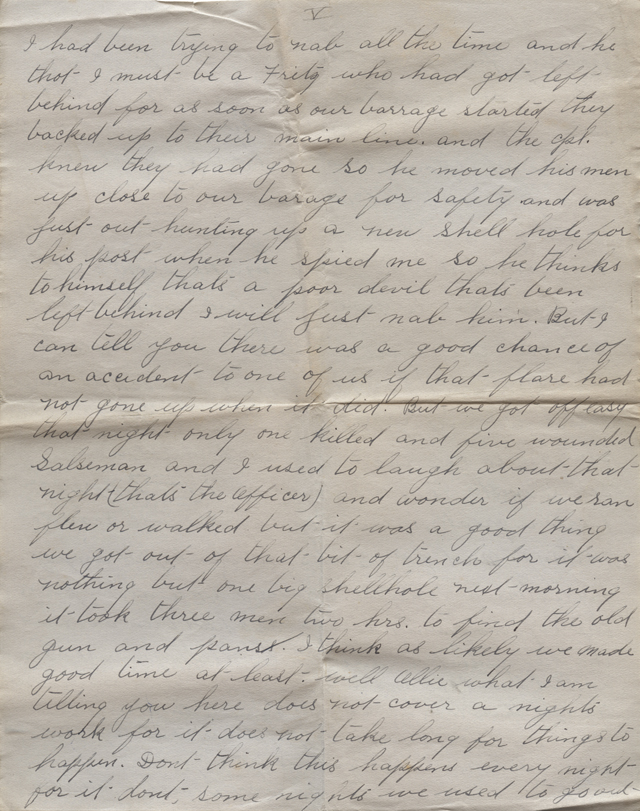 V
I had been trying to nab all the time and he
thot I must be a Fritz who had got left
behind for as soon as our barrage started they
backed up to their main line. and the cpl.
knew they had gone so he moved his men
up close to our barage for safety and was
just out hunting up a new shell hole for
his post when he spied me so he thinks
to himself thats a poor devil thats been
left behind I will just nab him. But I
can tell you there was a good chance of
an accident to one of us if that flare had
not gone up when it did. But we got off easy
that night only one killed and five wounded
Salseman and I used to laugh about that
night (thats the officer) and wonder if we ran
flew or walked but it was a good thing
we got out of that bit of trench for it was
nothing but one big shellhole next morning
it took three men two hrs. to find the old
gun and panss. I think as likely we made
good time at least. well Ollie what I am
telling you here does not cover a nights
work for it does not take long for things to
happen. Dont think this happens every night
for it dont, some nights we used to go out